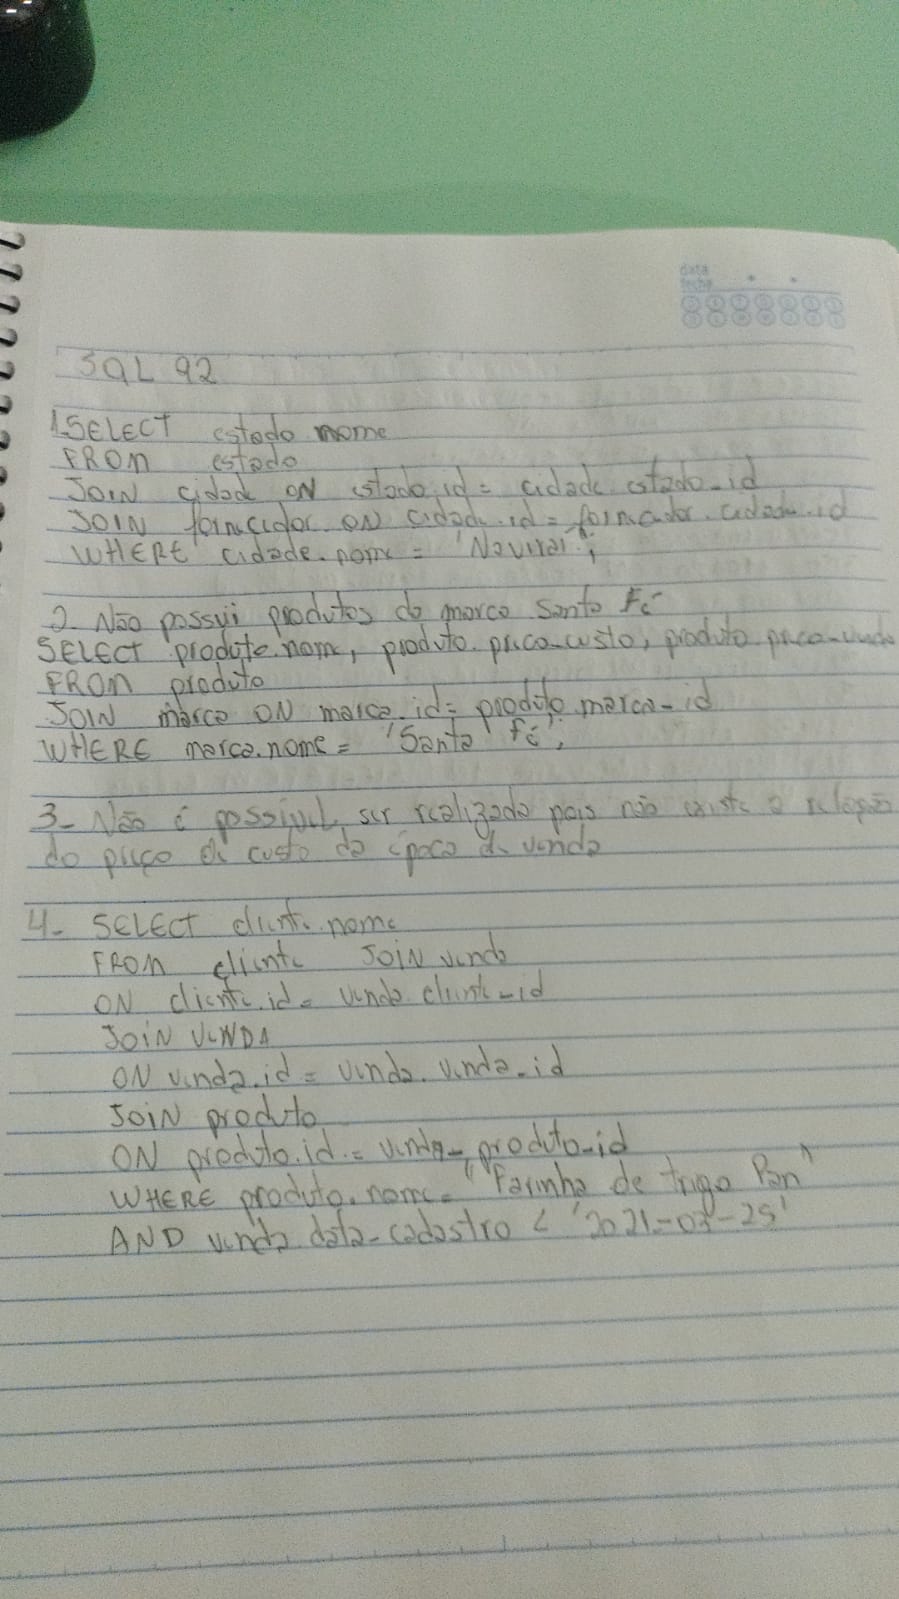 data
fecha
SQL 92
1. SELECT estado nome
FROM estado
JOIN cidade ON estado.id = cidade.estado_id
JOIN fornecedor ON cidade.id = fornecedor.cidade_id
WHERE cidade.nome = 'Navirai';
2. Não possui produtos da marca Santa Fé
SELECT produto.nome, produto.preco_custo, produto.preco_venda
FROM produto
JOIN marca ON marca.id = produto.marca_id
WHERE marca.nome = 'Santa Fé';
3- Não é possível ser realizado pois não existe a relação
do preço de custo da época da venda
4- SELECT cliente.nome
FROM cliente JOIN venda
ON cliente.id = venda.cliente_id
JOIN VENDA
ON venda.id = venda.venda_id
JOIN produto
ON produto.id = venda_produto_id
WHERE produto.nome = "Farinha de trigo Pan"
AND venda data_cadastro < '2021-03-25'